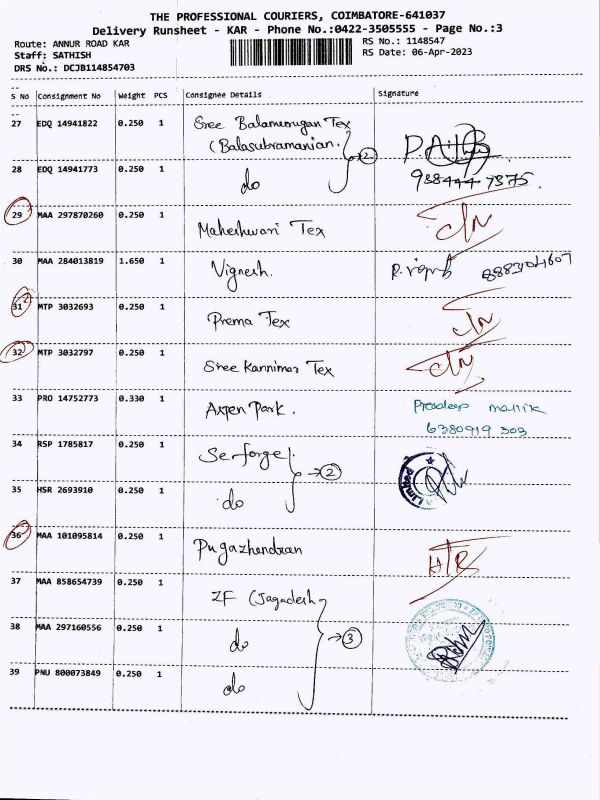 THE PROFESSIONAL COURIERS, COIMBATORE-641037
Delivery Runsheet - KAR - Phone No.:0422-3505555 - Page No.:3
Route: ANNUR ROAD KAR
RS No.: 1148547
Staff: SATHISH
RS Date: 06-Apr-2023
DRS No.: DCJB114854703
S No Consignment No Weight PCS Consignee Details Signature
27 EDQ 14941822 0.250 1 Sree Balamurugan Tex
(Balasubramanian. 2
28 EDQ 14941773 0.250 1 do
29 MAA 297870260 0.250 1 Maheshwari Tex
30 MAA 284013819 1.650 1 Vignesh. 8883104607
31 MTP 3032693 0.250 1 Prema Tex
32 MTP 3032797 0.250 1 Sree Kannimar Tex
33 PRO 14752773 0.330 1 Aspen Park. Pradeep mallik
6380919 303
34 RSP 1785817 0.250 1 Serforge). 2
35 HSR 2693910 0.250 1 do
Limited
36 MAA 101095814 0.250 1 Pugazhendran
37 MAA 858654739 0.250 1 ZF (Jagadesh
38 MAA 297160556 0.250 1 do 3
39 PNU 800073849 0.250 1 do